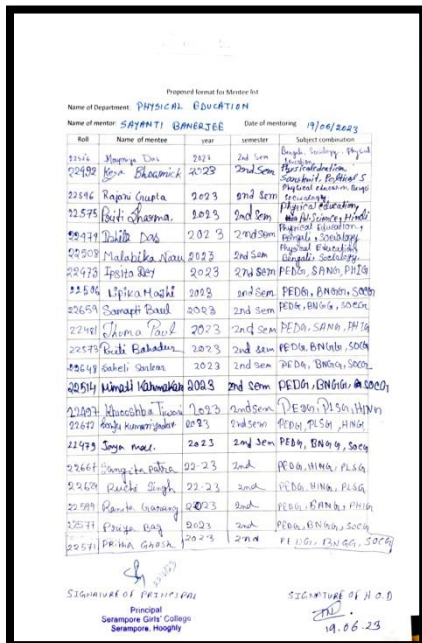 Proposed format for Mentee list
Name of Department: PHYSICAL EDUCATION
Name of mentor: SAYANTI BANERJEE Date of mentoring 19/06/2023
Roll Name of mentee year semester Subject combination
Das 2023 2nd Sem Bengali, Sociology, Physical
education
22492 Keya Bhowmick 2023 2nd Sem Physical education
Sanskrit, Political S
22596 Rajani Gupta 2023 2nd Sem Physical education, Bengali
22575 Priti Sharma. 2023 2nd Sem Physical education,
Pol. Science, Hindi
22477 Das 2023 2nd Sem Physical Education,
Bengali, Sociology
22508 Malabika 2023 2nd Sem Physical Education
Bengali, Sociology.
22473 Ipsita Dey 2023 2nd Sem PEDG, SANG, PHIG
22506 Lipika Majhi 2023 2nd Sem PEDG, BNGG, SOCG
22659 Samapti Baul 2023 2nd Sem PEDG, BNGG, SOCG
22481 Jhuma Paul 2023 2nd Sem PEDG, SANG, PHIG
22573 Priti Bahadur 2023 2nd sem PEDG, BNGG, SOCG
22648 Saheli Sarkar 2023 2nd Sem PEDG, BNGG, SOCG
22514 Karmakar 2023 2nd sem PEDG, BNGG, SOCG
22497 Khooshba Tiwari 2023 2nd sem PEDG, PLSG, HING
22612 2023 2nd sem PEDG, PLSG, HING
22479 Joya 2023 2nd Sem PEDG, BNGG, SOCG
22667 Sangita Patra 22-23 2nd PEDG, HING, PLSG
22624 Ruchi Singh 22-23 2nd PEDG, HING, PLSG
22599 2023 2nd PEDG, SANG, PHIG
22577 Priya Bag 2023 2nd PEDG, BNGG, SOCG
22571 PRIYA GHOSH 2023 2nd PEDG, BNGG, SOCG
SIGNATURE OF PRINCIPAL SIGNATURE OF H.O.D
Principal
Serampore Girls' College
Serampore, Hooghly
19.06.23